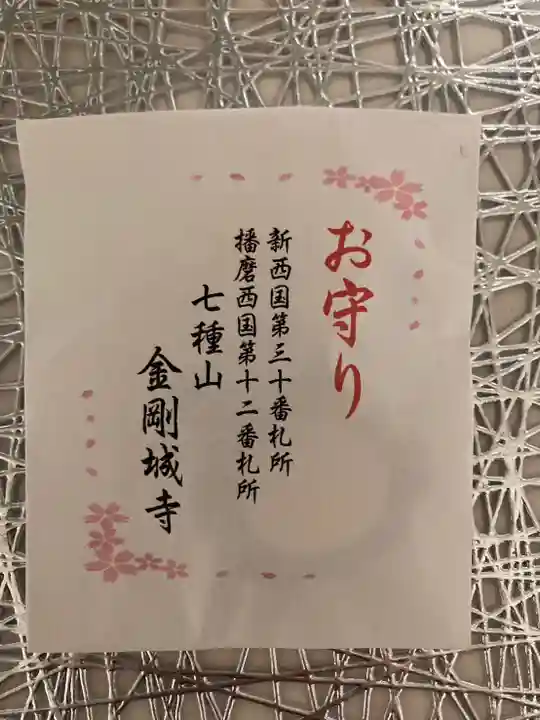 お守り
新西国第三十番札所
播磨西国第十二番札所
七種山
金剛城寺